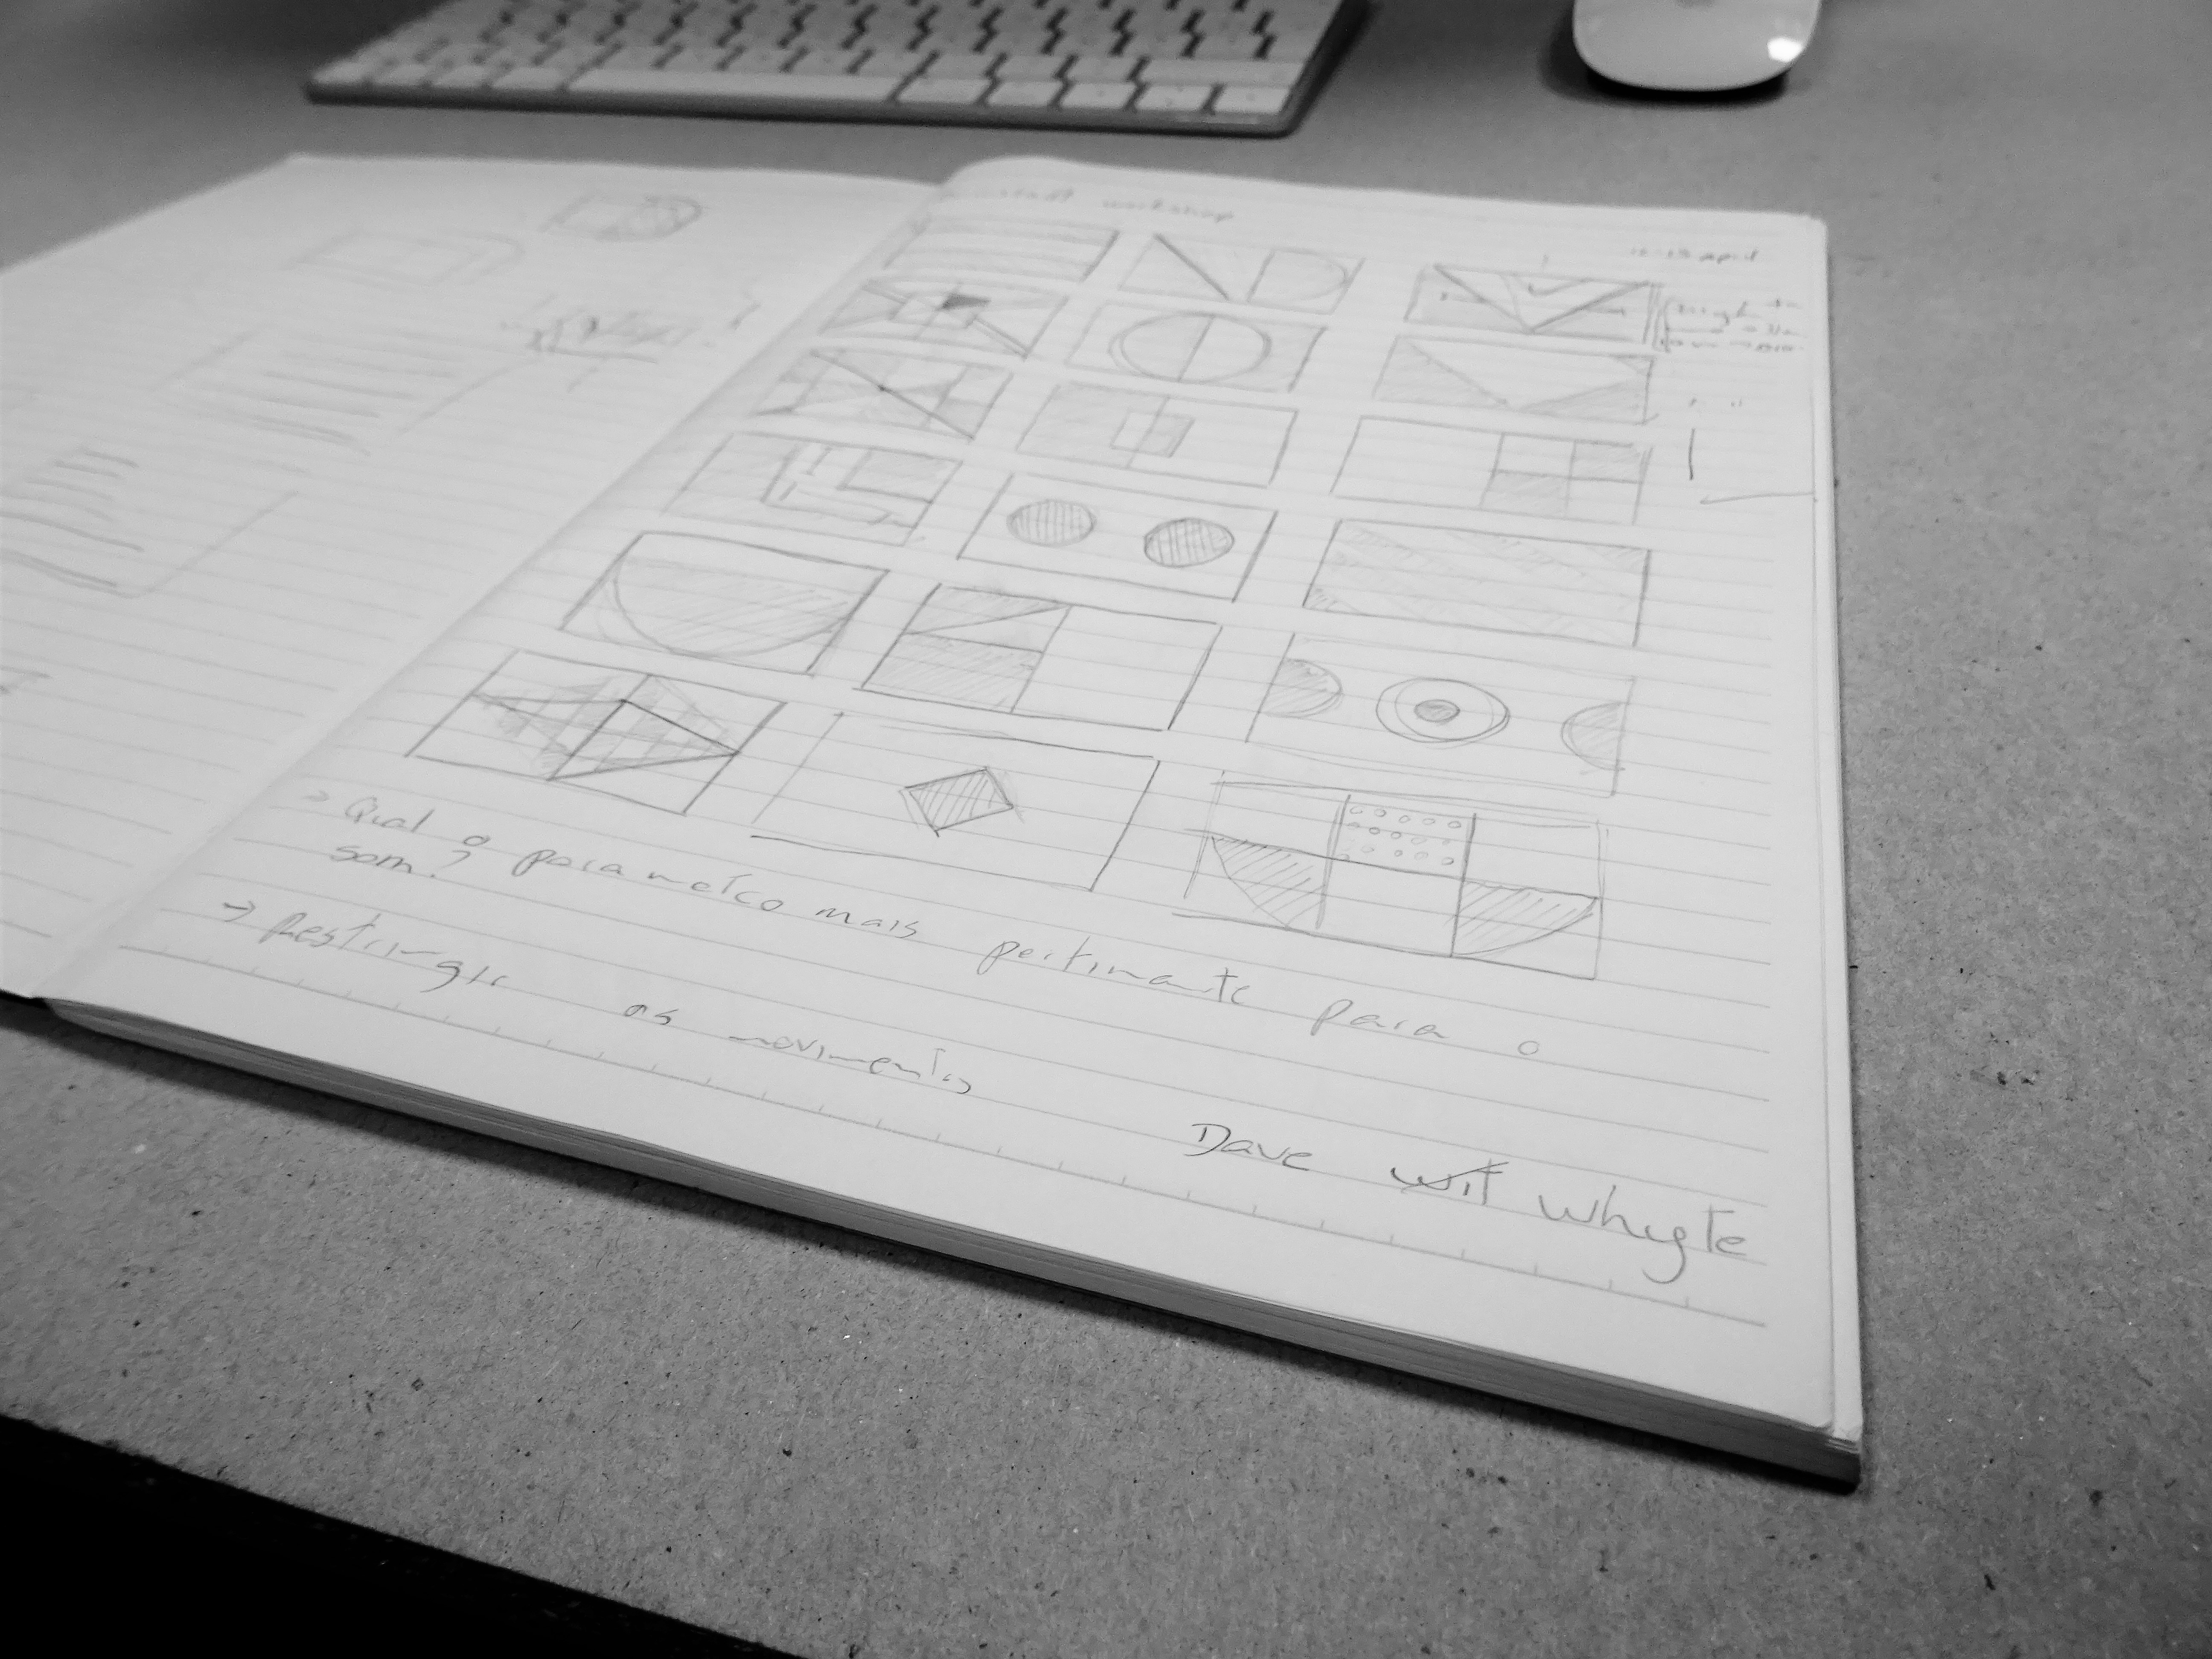 workshop
april
→ Qual o parametro mais pertinente para o
som?
→ Restringir os movimentos
Dave wit whyte